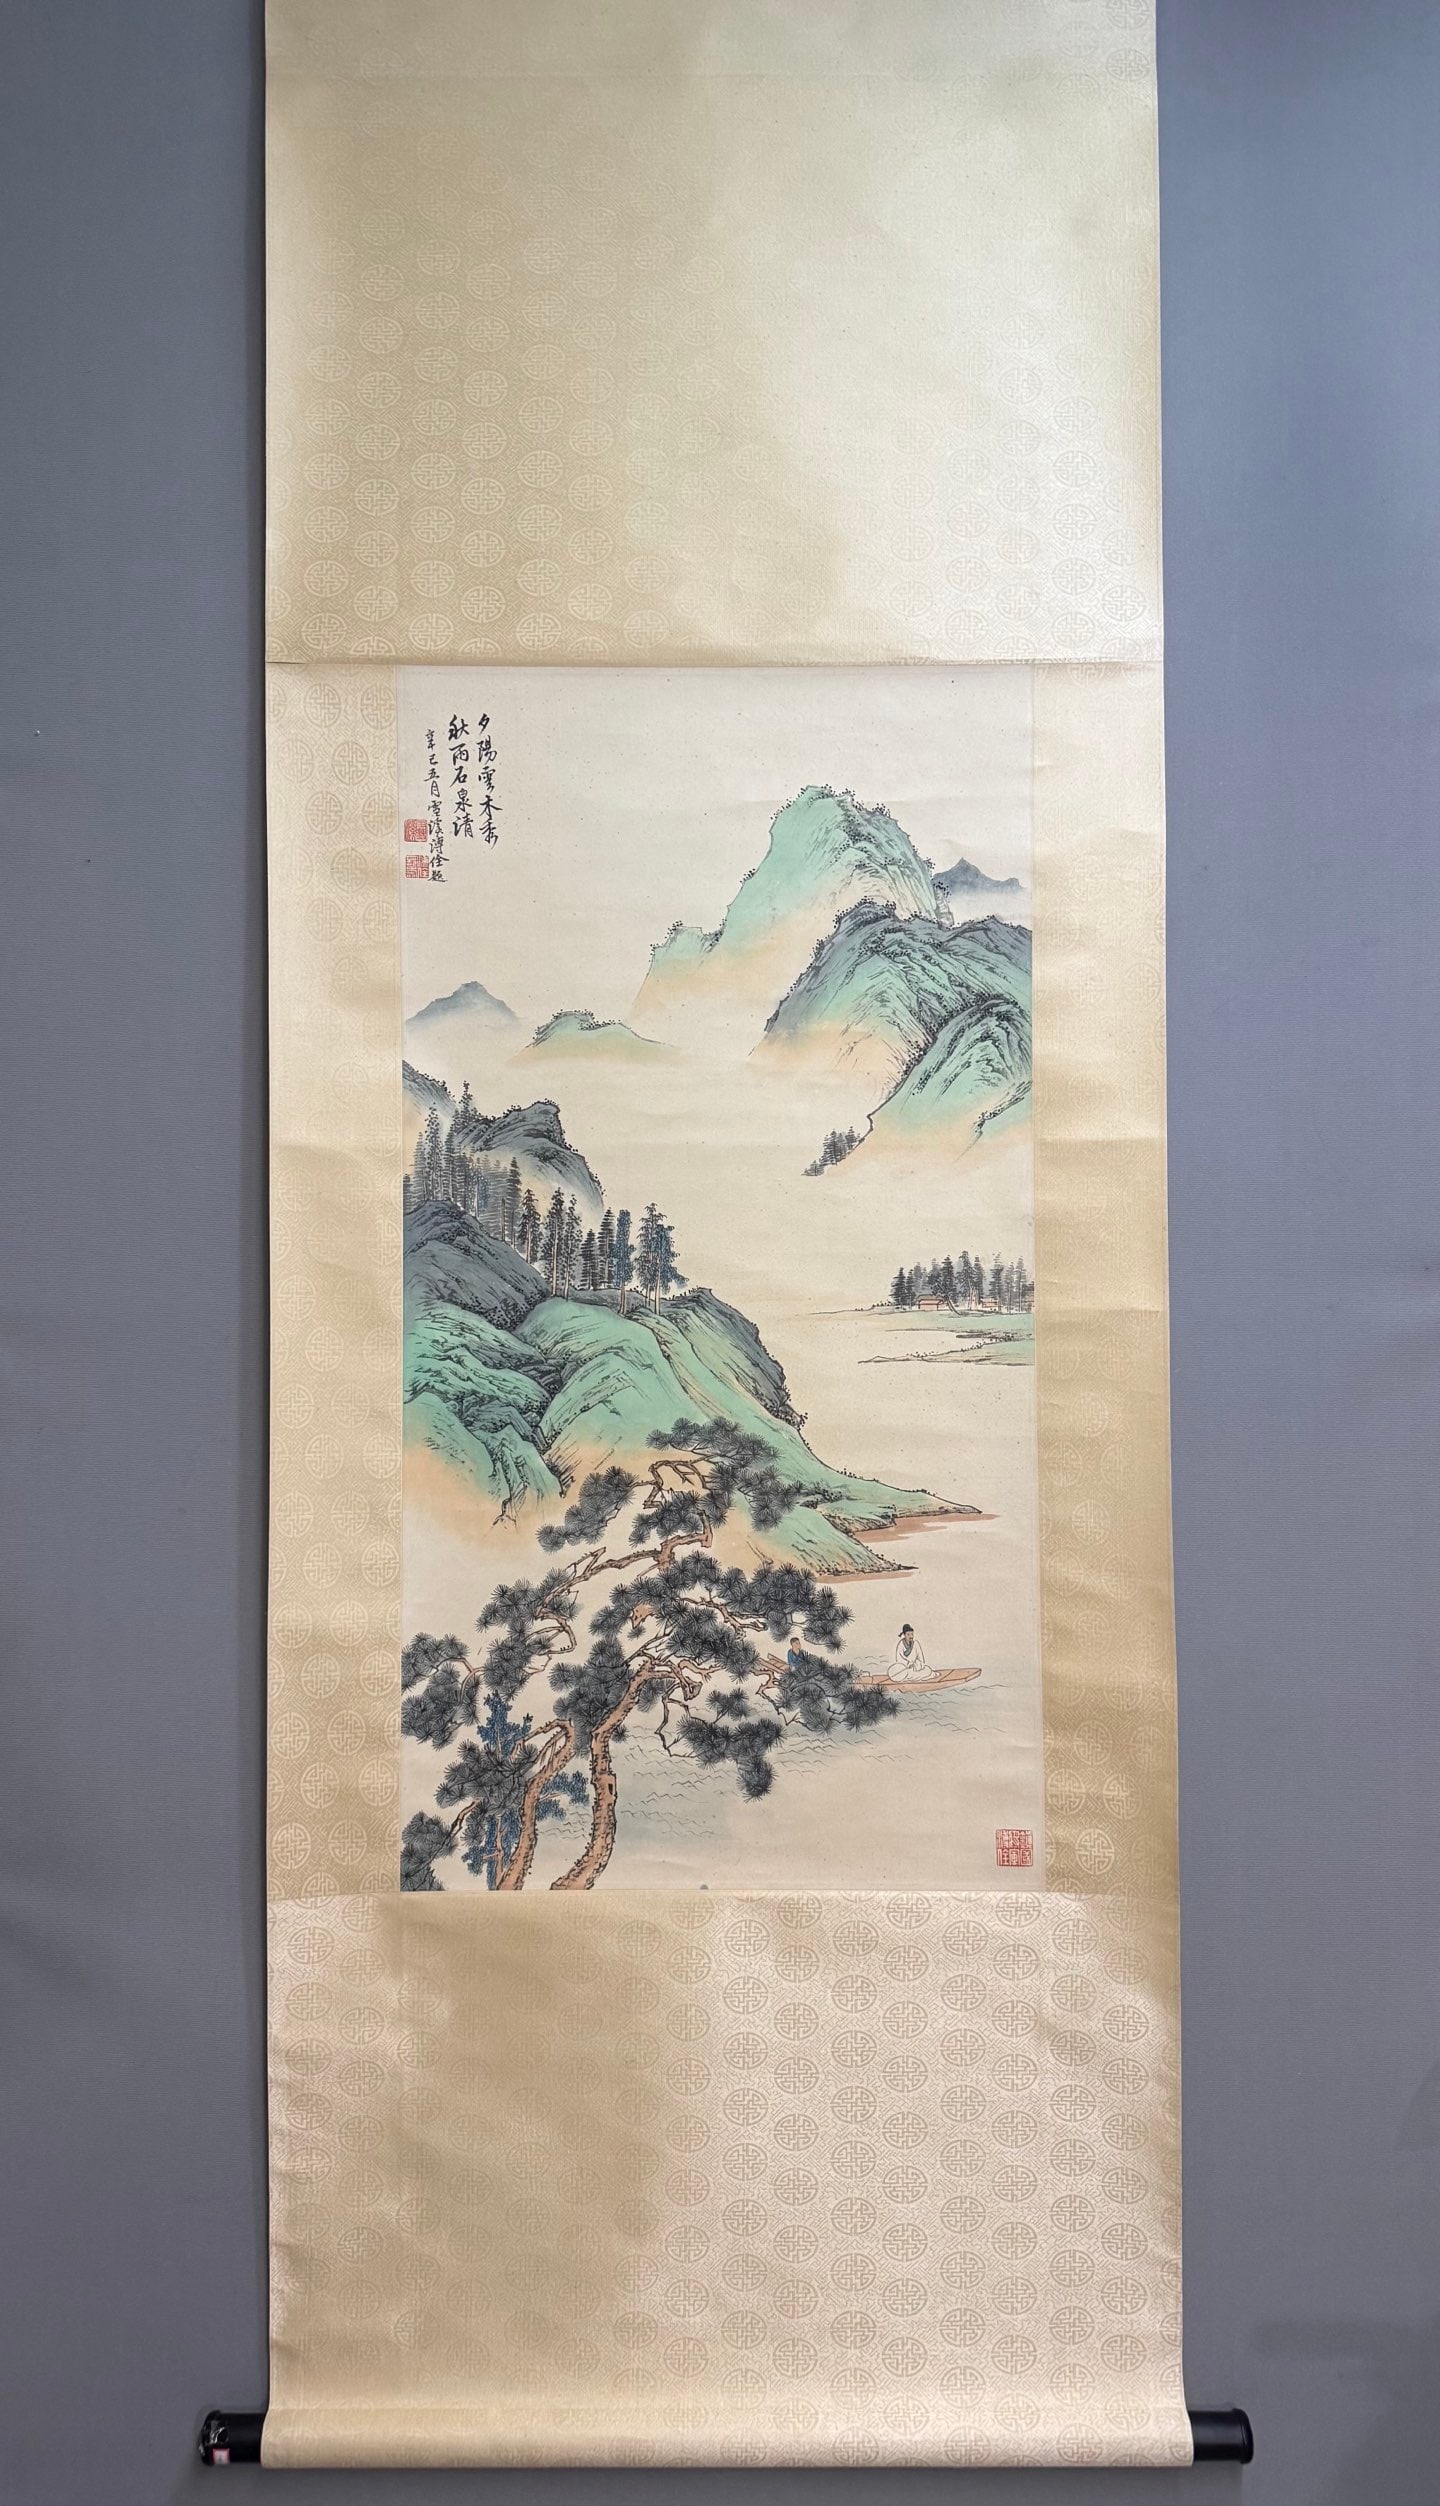 夕陽雲木秀
秋雨石泉清
辛巳五月雪溪溥佺題